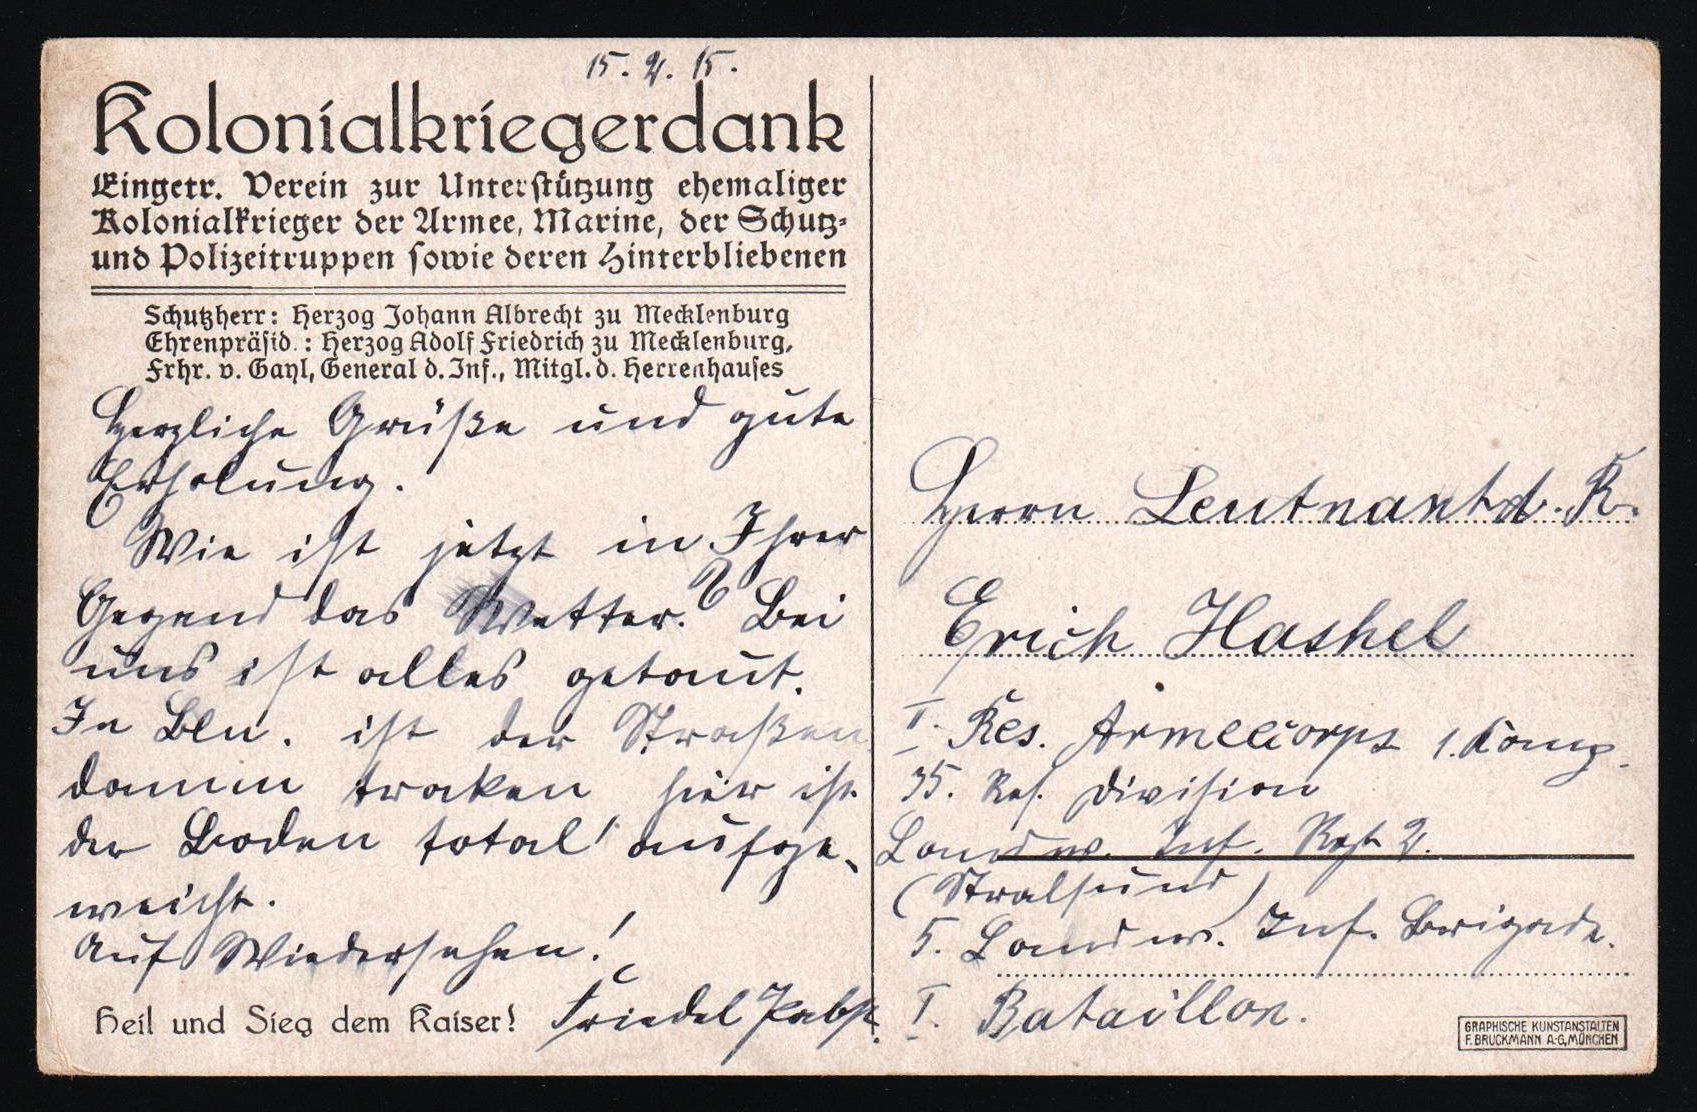 15. 2. 15.
Kolonialkriegerdank
Eingetr. Verein zur Unterstützung ehemaliger
Kolonialkrieger der Armee, Marine, der Schutz-
und Polizeitruppen sowie deren Hinterbliebenen
Schutzherr: Herzog Johann Albrecht zu Mecklenburg
Ehrenpräsid.: Herzog Adolf Friedrich zu Mecklenburg,
Frhr. v. Gayl, General d. Inf., Mitgl. d. Herrenhauses
Herzliche Grüße und gute
Erholung.
Wie ist jetzt in Ihrer
Gegend das Wetter.? Bei
uns ist alles getaut.
In Bln. ist der Straßen
damm troken hier ist
der Boden total aufge-
weicht.
Auf Wiedersehen!
Friedel Pabst.
Heil und Sieg dem Kaiser!
Herrn Leutnant d. R.
Erich Hashel
I. Res. Armeecorps 1. Komp.
35. Res. Division
Landw. Inf. Regt 2.
(Stralsund)
5. Landw. Inf. Brigade.
I. Bataillon.
GRAPHISCHE KUNSTANSTALTEN
F. BRUCKMANN A.-G., MÜNCHEN